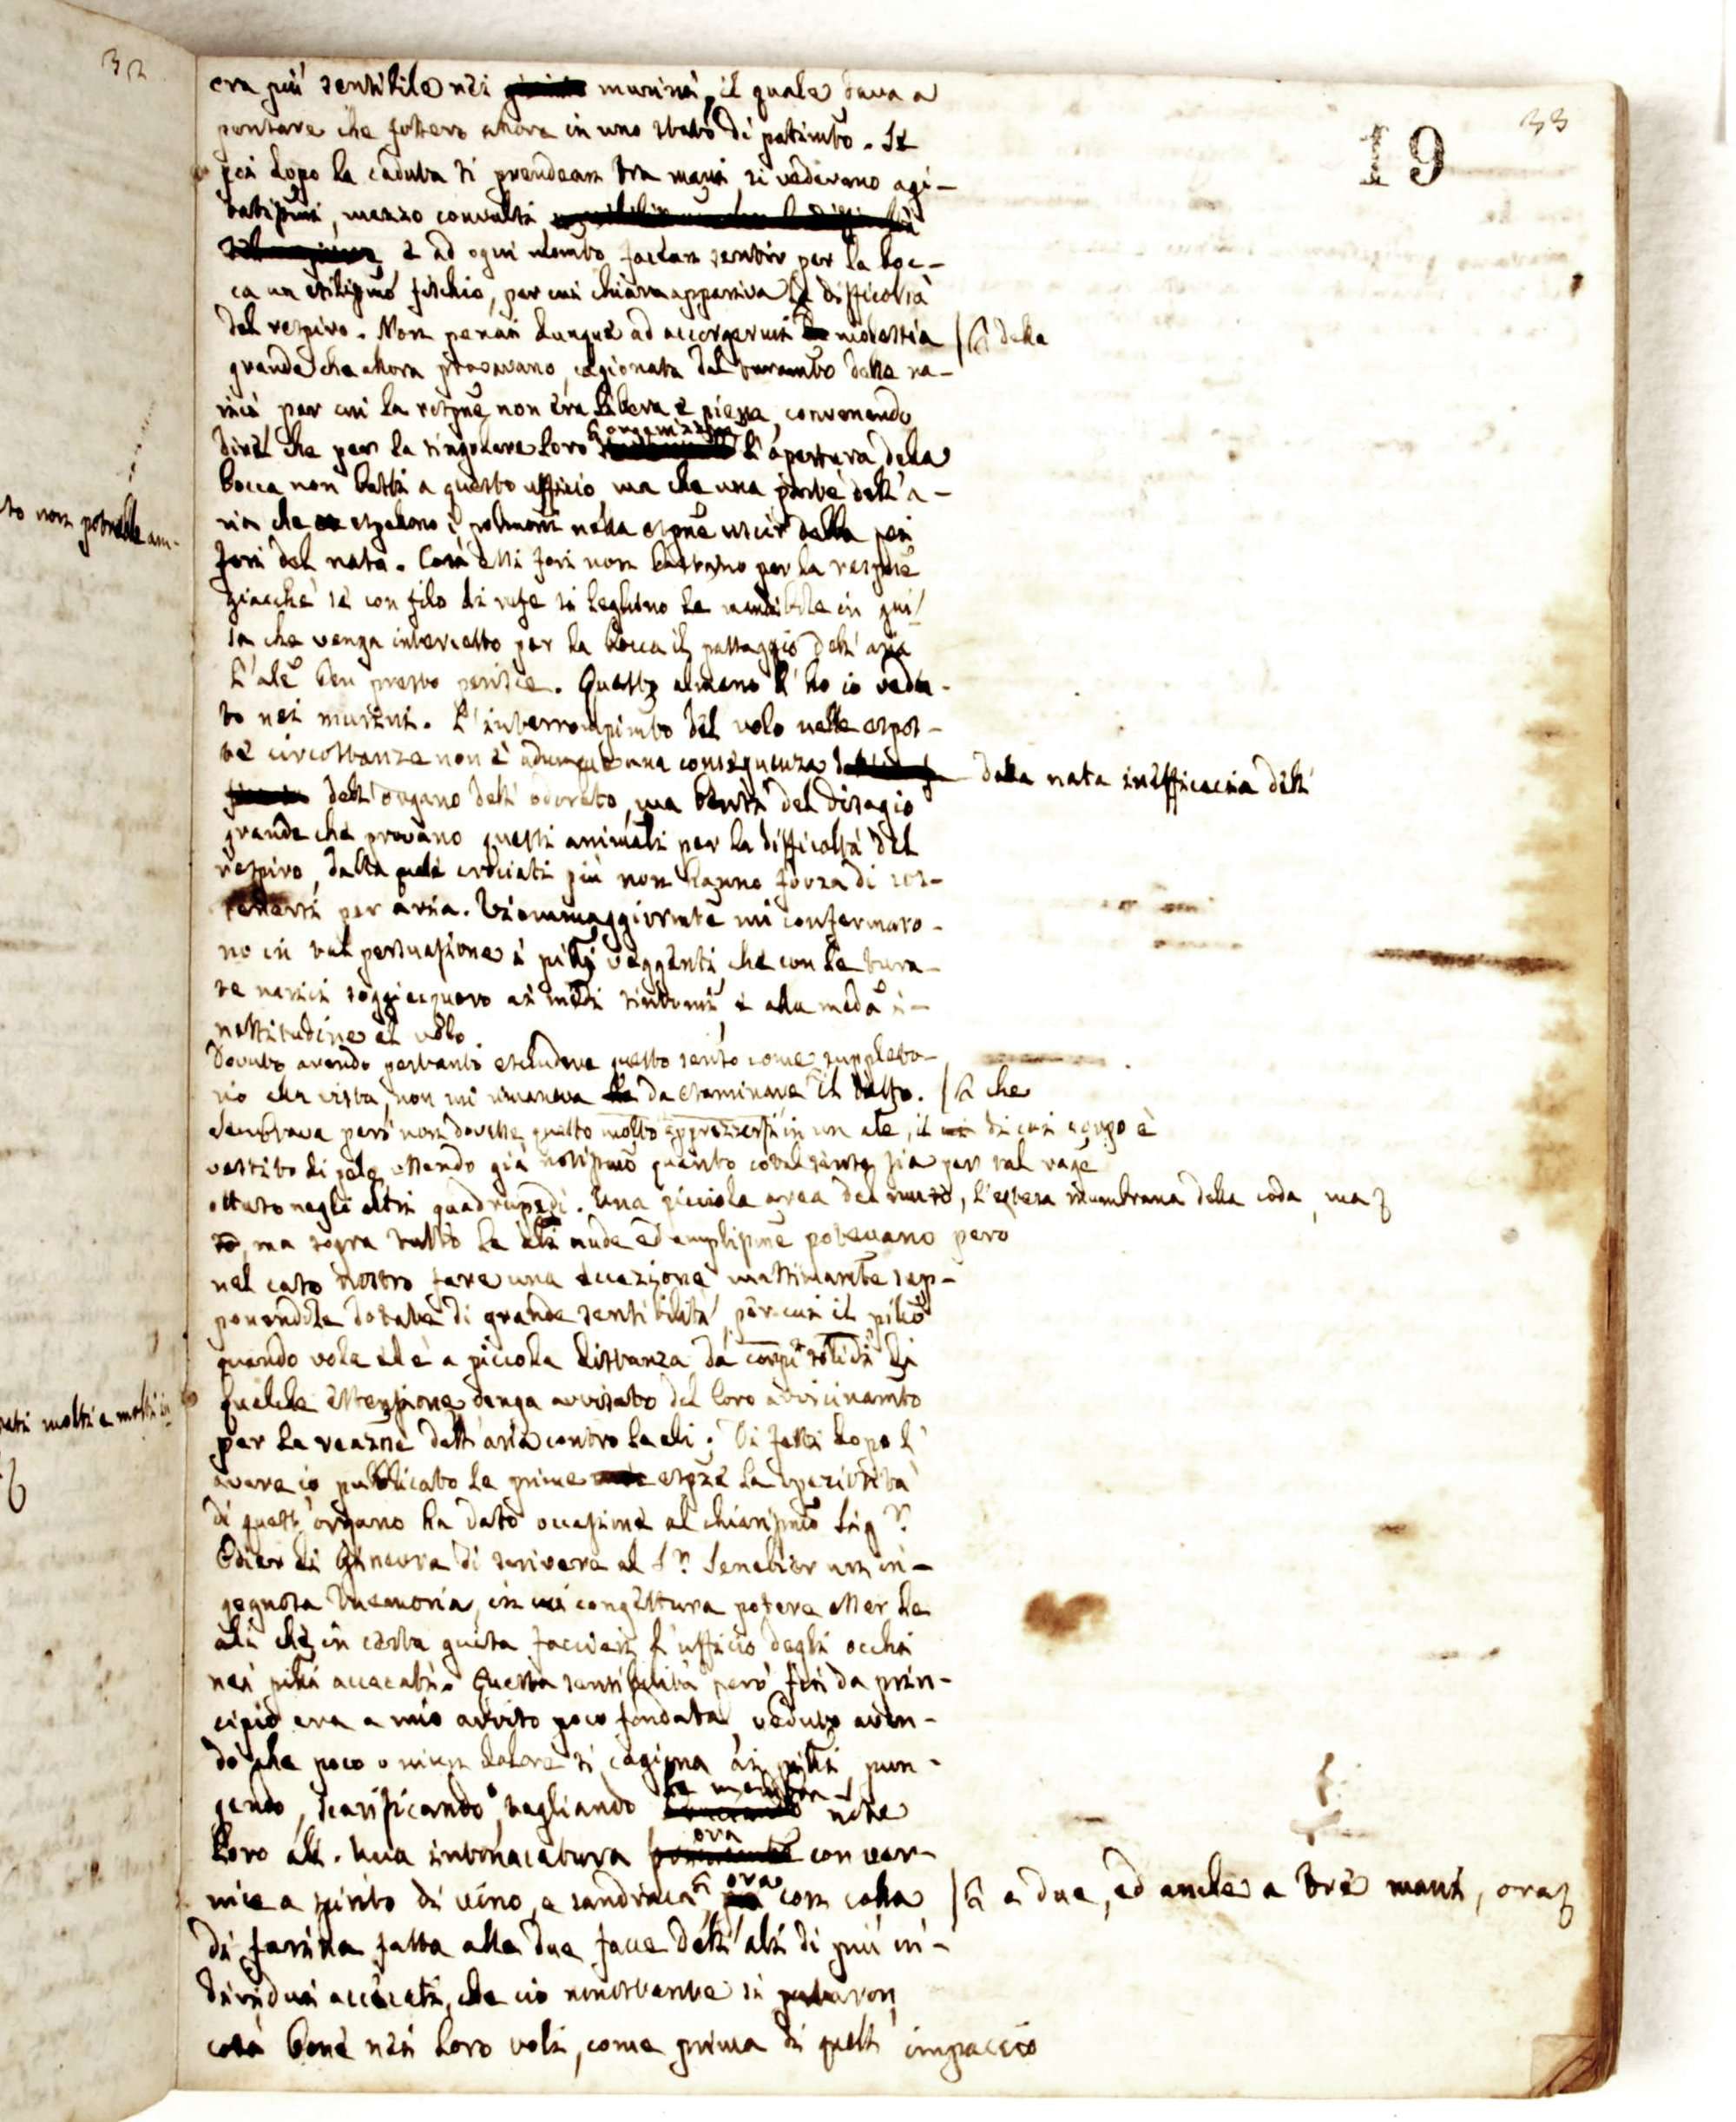 32
33
19
era più sensibile nei murini, il quale dava a
pensare che fossero allora in uno stato di patimto. Se
poi dopo la caduta si prendean tra mani si vedevano agi-
tatissimi, mezzo convulsi
e ad ogni momto facean sentir per la boc-
ca un esilissimo fischio, per cui chiara appariva la difficoltà
del respiro. Non penai dunque ad accorgermi molestia
della
grande che allora provavano, cagionata dal turamto delle na-
rici per cui la respne non era libera e piena, convenendo
dire che per la singolare loro organizzne l'apertura della
bocca non basti a questo ufficio, ma che una parte dell'a-
ria che espellono i polmoni nella espne uscir della pei
fori del naso. Così essi fori non bastano per la respne
giacchè se con filo di refe si leghino le mandibole in gui-
sa che venga intercetto per la bocca il passaggio dell'aria
l'ale ben presto perisce. Questo almeno l'ho io vedu-
to nei murini. L'interrompimto del volo nelle espos-
te circostanze non è adunque una conseguenza
dalla nata inefficacia dell'
dell'organo dell'odorato, ma bensì del disagio
grande che provano questi animali per la difficoltà del
respiro, dalla quale cruciati più non hanno forza di sos-
tenersi per aria. Viemmaggiormte mi confermaro-
no in tal persuasione i plli veggenti che con le tura-
te narici soggiacquero ai mdi sintomi, e alla meda i-
nettitudine al volo.
Dovuto avendo pertanto escludere questo senso come suppleto-
rio alla vista, non mi rimaneva da esaminare il tatto.
che
Sembrava però non dovesse questo molto apprezzarsi in un ale, il di cui corpo è
vestito di pelo, essendo già notissimo quanto cotal senso sia per tal rage
ottuso negli altri quadrupedi. Una picciola area del muso, l'estesa membrana della coda, ma
ma sopra tutto le ali nude ed amplissime potevano pero
nel caso nostro fare una eccezione massimamte sup-
ponendole dotate di grande sensibilità, per cui il pllo
quando vola ed è a piccola distanza da corpi solidi di
qualche estensione venga avvisato del loro avvicinamto
per la reazne dell'aria contro le ali. Di fatti dopo l'
avere io pubblicato le prime espze la operosità
di quest'organo ha dato occasione al chiarissimo Sigr.
Odier di Ginevra di scrivere al Sr. Senebier un in-
gegnosa memoria, in cui congettura potere esser le
ali che in certa guisa faccian l'ufficio degli occhi
nei plli accecati. Questa sensibilità però fin da prin-
cipio era a mio avviso poco fondata, veduto aven-
do che poco o niun dolore si cagiona ai plli pun-
gendo, scarificando, tagliando le membra- nelle
loro ali. Una intonacatura ora con ver-
nice a spirito di vino, e sandraca, ora con colla
a due, ed anche a tre mani, ora
di farina fatta alle due facce dell'ali di più in-
dividui accecati, che ciò nonostante si
così bene nei loro voli, come prima di quest' impaccio
to non potrebbe am-
molti e molti